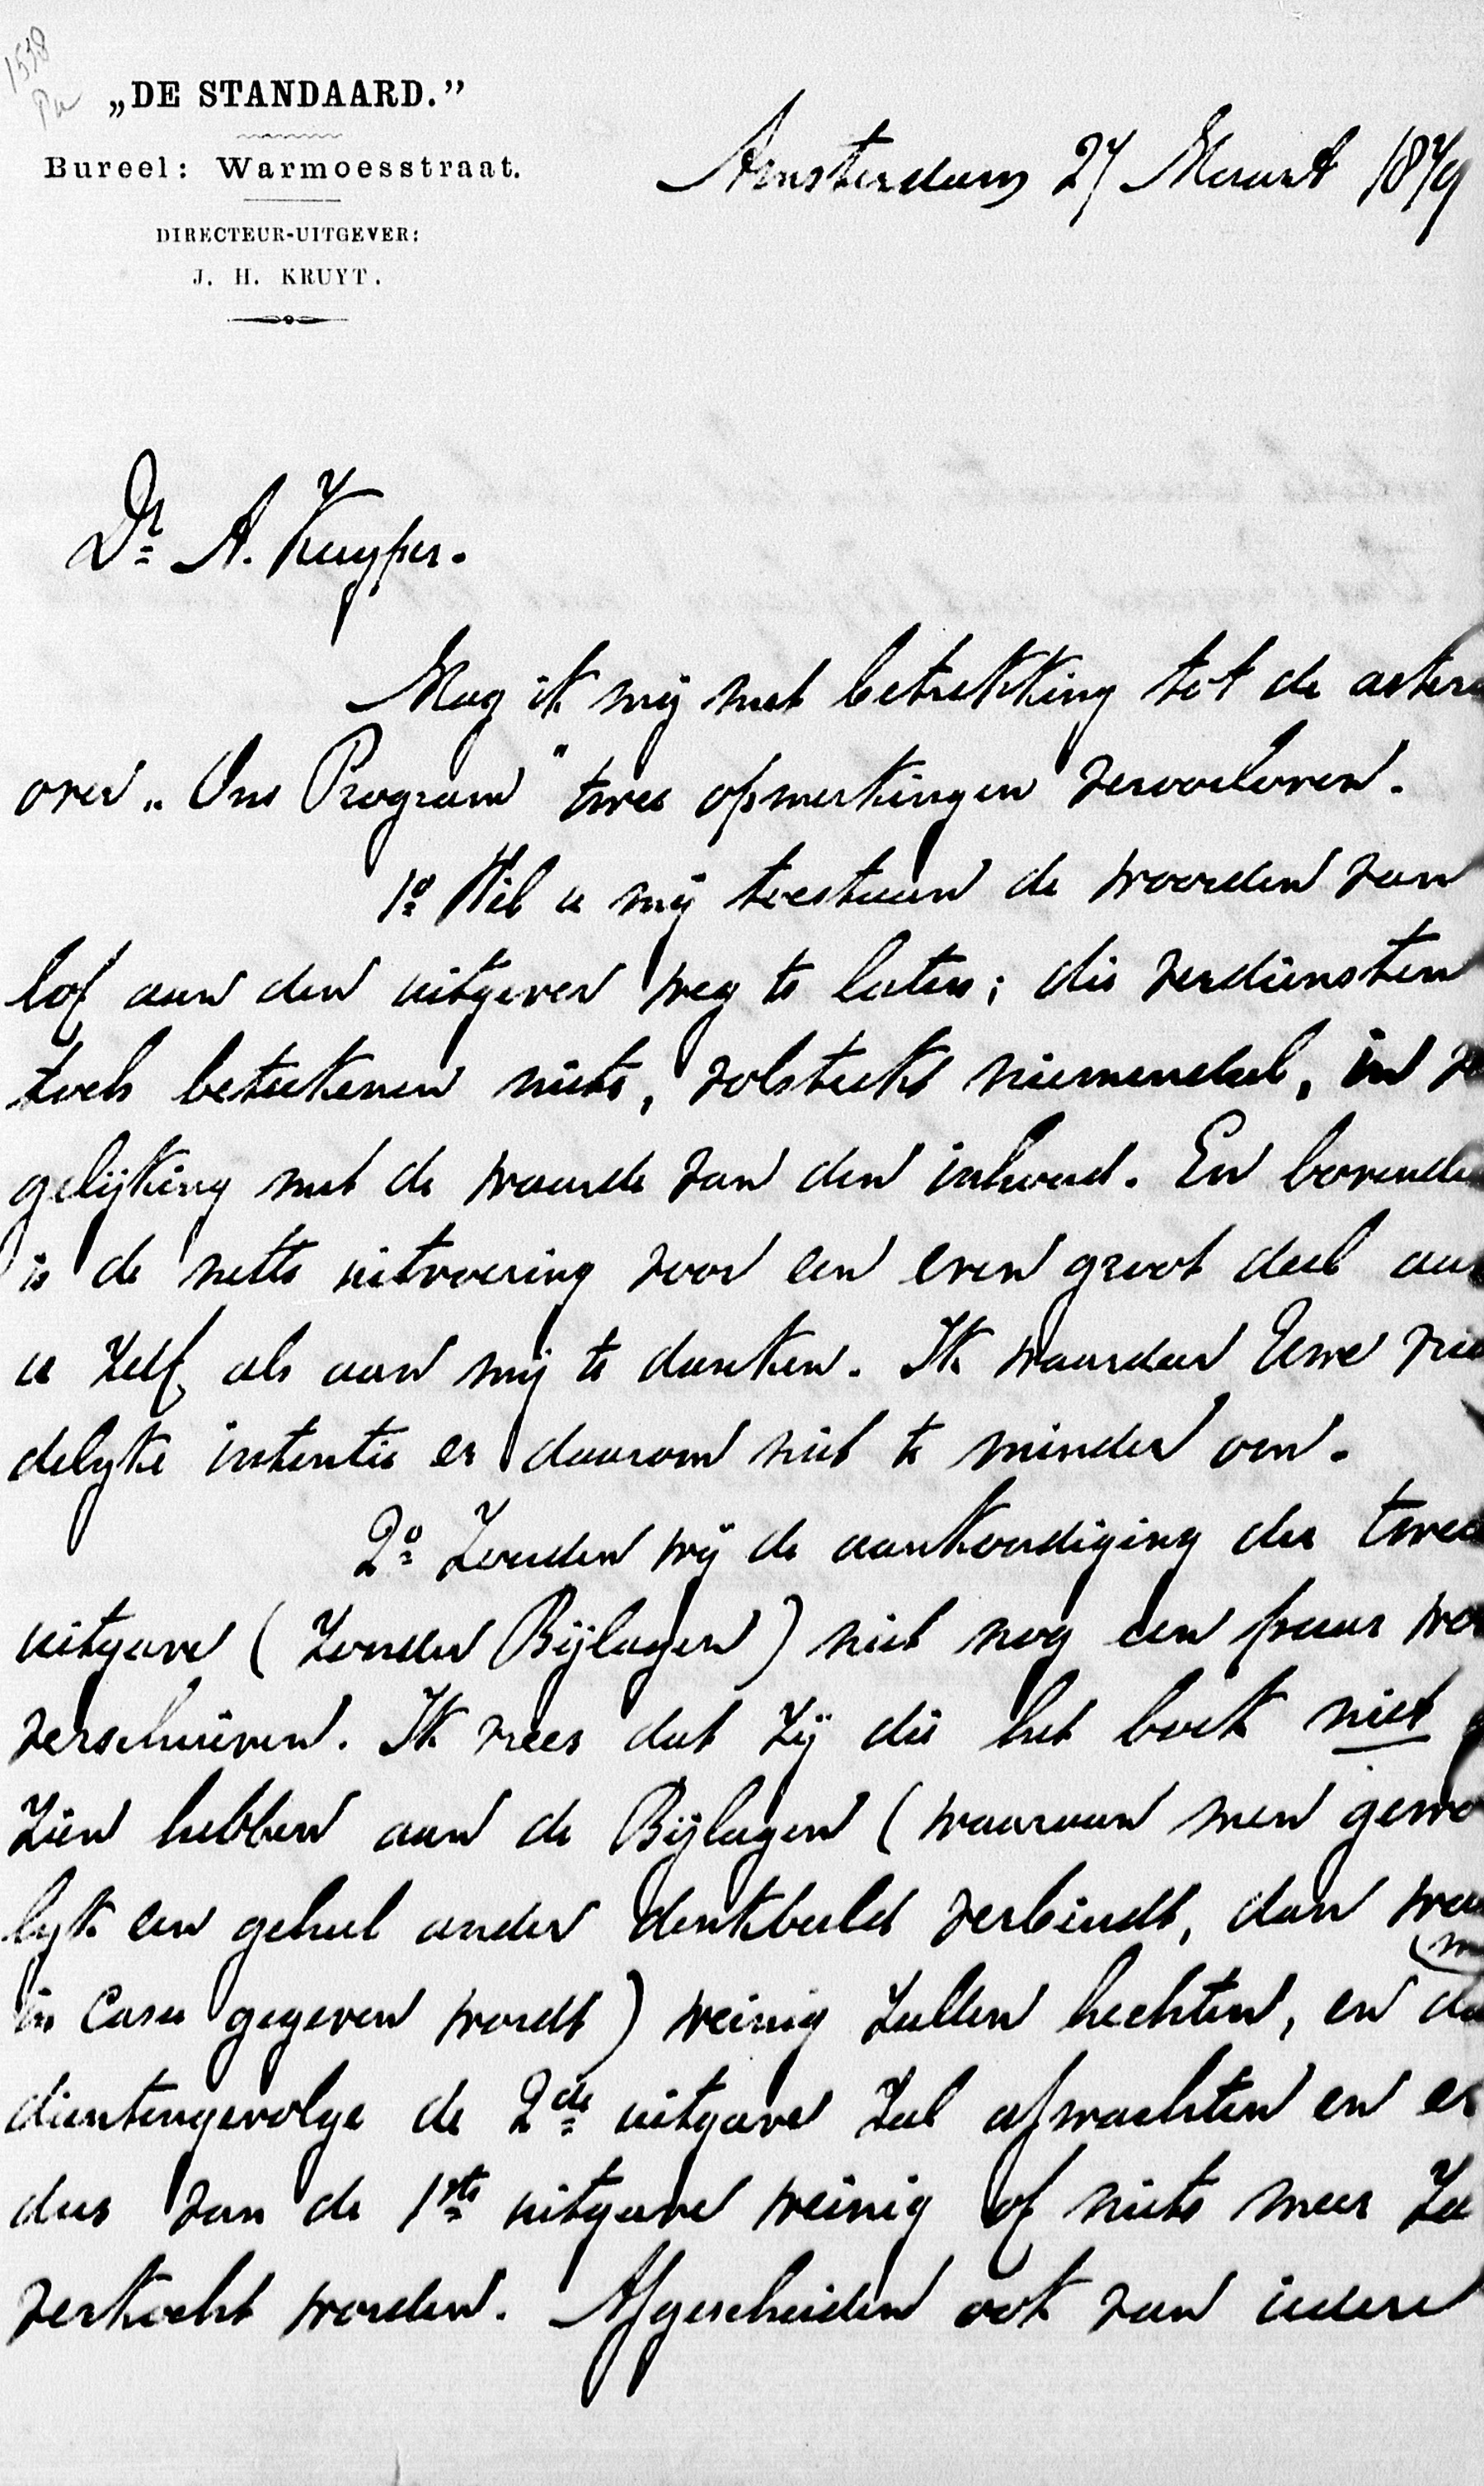 1538
„DE STANDAARD.”
Bureel: Warmoesstraat.
DIRECTEUR-UITGEVER:
J. H. KRUYT.
Amsterdam 27 Maart 1879
Dr A. Kuyper.
Mag ik mij met betrekking tot de
over „Ons Program” twee opmerkingen veroorloven.
1o Wil u mij toestaan de woorden van
lof aan den uitgever weg te laten; die verdiensten
toch beteekenen niets, volstrekt niemendal, in
gelijking met de waarde van den inhoud. En bovendi
is de nette uitvoering voor een even groot deel aan
u zelf als aan mij te danken. Ik waardeer Uwe vrien
delyke intentie er daarom niet te minder om.
2o Zouden wij de aankondiging der twee
uitgave (zonder Bijlagen) niet nog een paar
verschuiven. Ik vrees dat zij die het boek niet
zien hebben aan de Bijlagen (waaraan men gewo
lyk een geheel ander denkbeeld verbindt, dan
in casu gegeven wordt) weinig zullen hechten, en
dientengevolge de 2de uitgave zal afwachten en er
dus van de 1ste uitgave weinig of niets meer za
verkocht worden. Afgescheiden ook van iedere